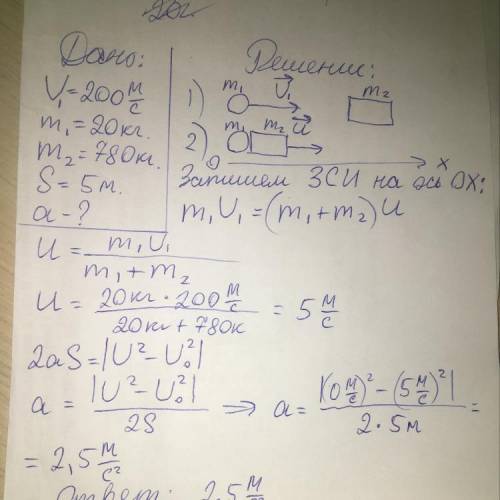 Дано:
V₁=200 м/с
m₁=20кг.
m₂=780кг.
S=5м.
a-?
Решение:
1) m₁ U₁ m₂
2) m₁ m₂ U
0 x
Запишем ЗСИ на ось OX:
m₁U₁=(m₁+m₂)U
U = m₁U₁ / m₁+m₂
U = 20кг·200 м/с / 20кг+780к = 5 м/с
2aS=|U²-U₀²|
a = |U²-U₀²| / 2S => a= |(0 м/с)²-(5 м/с)²| / 2·5м =
= 2,5 м/с²
Ответ: 2,5 м